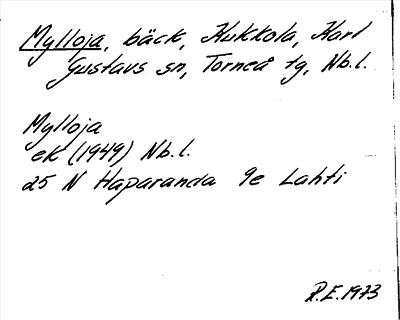 Mylloja, bäck, Kukkola, Karl
Gustavs sn, Torneå tg, Nb.l.
Mylloja
ek (1949) Nb.l.
25 N Haparanda 9e Lahti
P.E. 1973